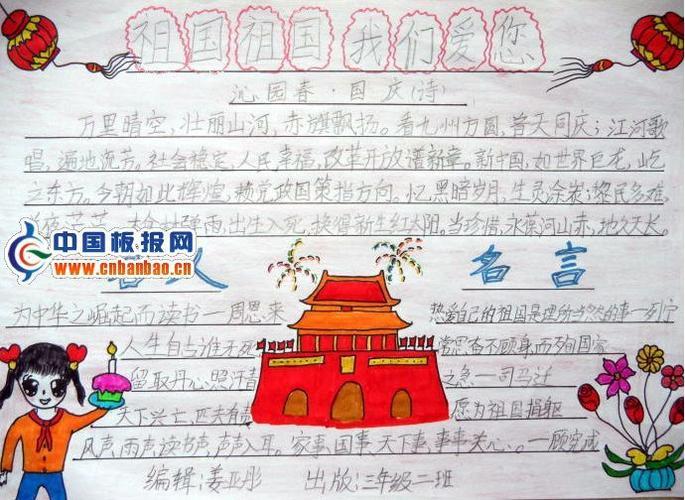 祖国祖国 我们爱您
沁园春·国庆(诗)
万里晴空,壮丽山河,赤旗飘扬。看九州方圆,普天同庆;江河歌
唱,遍地流芳。社会稳定,人民幸福,改革开放谱新章。新中国,如世界巨龙,屹
立东方。今朝如此辉煌,赖党政国策指方向。忆黑暗岁月,生灵涂炭;黎民多难,
雨,出生入死,换得新生红太阳。当珍惜,永葆河山赤,地久天长。
中国板报网
www.cnbanbao.cn
名人 名言
为中华之崛起而读书—周恩来
人生自古谁无死
留取丹心照汗青
天下兴亡,匹夫有责
热爱自己的祖国是理所当然的事—列宁
常思奋不顾身而殉国家
之急—司马迁
愿为祖国捐躯
风声,雨声,读书声,声声入耳。家事,国事,天下事,事事关心。—顾宪成
编辑:姜亚彤 出版:三年级二班